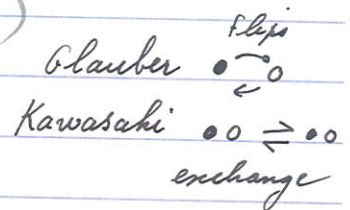 Flips
Glauber
Kawasaki
exchange